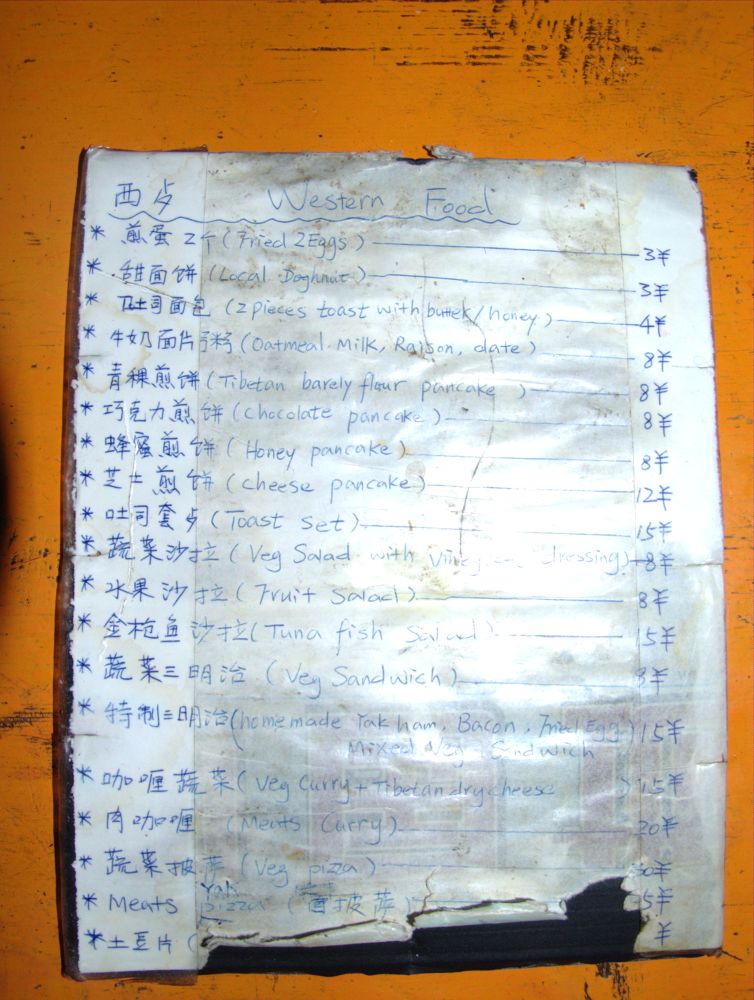 西歺 Western Food
* 煎蛋2个(Fried 2Eggs) 3¥
* 甜面饼(Local Doghnut) 3¥
* 吐司面包(2pieces toast with butter/honey) 4¥
* 牛奶面片粥(Oatmeal. Milk, Raison, date) 8¥
* 青稞煎饼(Tibetan barely flour pancake ) 8¥
* 巧克力煎饼(chocolate pancake) 8¥
* 蜂蜜煎饼(Honey pancake) 8¥
* 芝士煎饼(cheese pancake) 12¥
* 吐司套歺(Toast set) 15¥
* 蔬菜沙拉(Veg Salad with dressing) 8¥
* 水果沙拉(Fruit Salad) 8¥
* 金枪鱼沙拉(Tuna fish Salad) 15¥
* 蔬菜三明治(Veg Sandwich) ¥
* 特制三明治(homemade Yak ham, Bacon, Fried Egg) 15¥
Mixed Veg Sandwich
* 咖喱蔬菜(Veg Curry+Tibetan dry cheese ) 15¥
* 肉咖喱(Meats Curry) 20¥
* 蔬菜披萨(Veg pizza) ¥
Yak
* Meats pizza (披萨) 5¥
* 土豆片( ¥